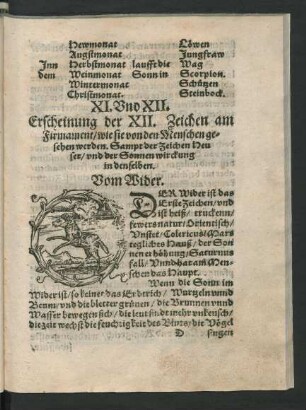 Hewmonat Löwen
Augstmonat Jungfraw
Inn Herbstmonat laufft die Wag
dem Weinmonat Sonn in Scorpion.
Wintermonat Schützen
Christmonat. Steinbock.
XI. Vnd XII.
Erscheinung der XII. Zeichen am
Firmament / wie sie von den Menschen ge-
sehen werden. Sampt der Zeichen Heu-
ser / vnd der Sonnen wirckung
in denselben.
Vom Wider.
DER Wider ist das
Erste Zeichen / vnd
ist heiß / truckenn /
natur / Orientisch /
Vnstet / Colericus / Mars
tegliches Hauß / der Son
nen erhöhung / Saturnus
fall / Vnnd hat am Men-
schen das Haupt.
Wenn die Sonn im
Wider ist / so das Erdtrich / Wurtzeln vnnd
Beum / vnd die bletter grünen / die Brunnen vnnd
Wasser bewegen sich / die leut sind mehr vnkeusch /
die zeit wechst die feuchtigkeit des Bluts / die Vögel
D singen